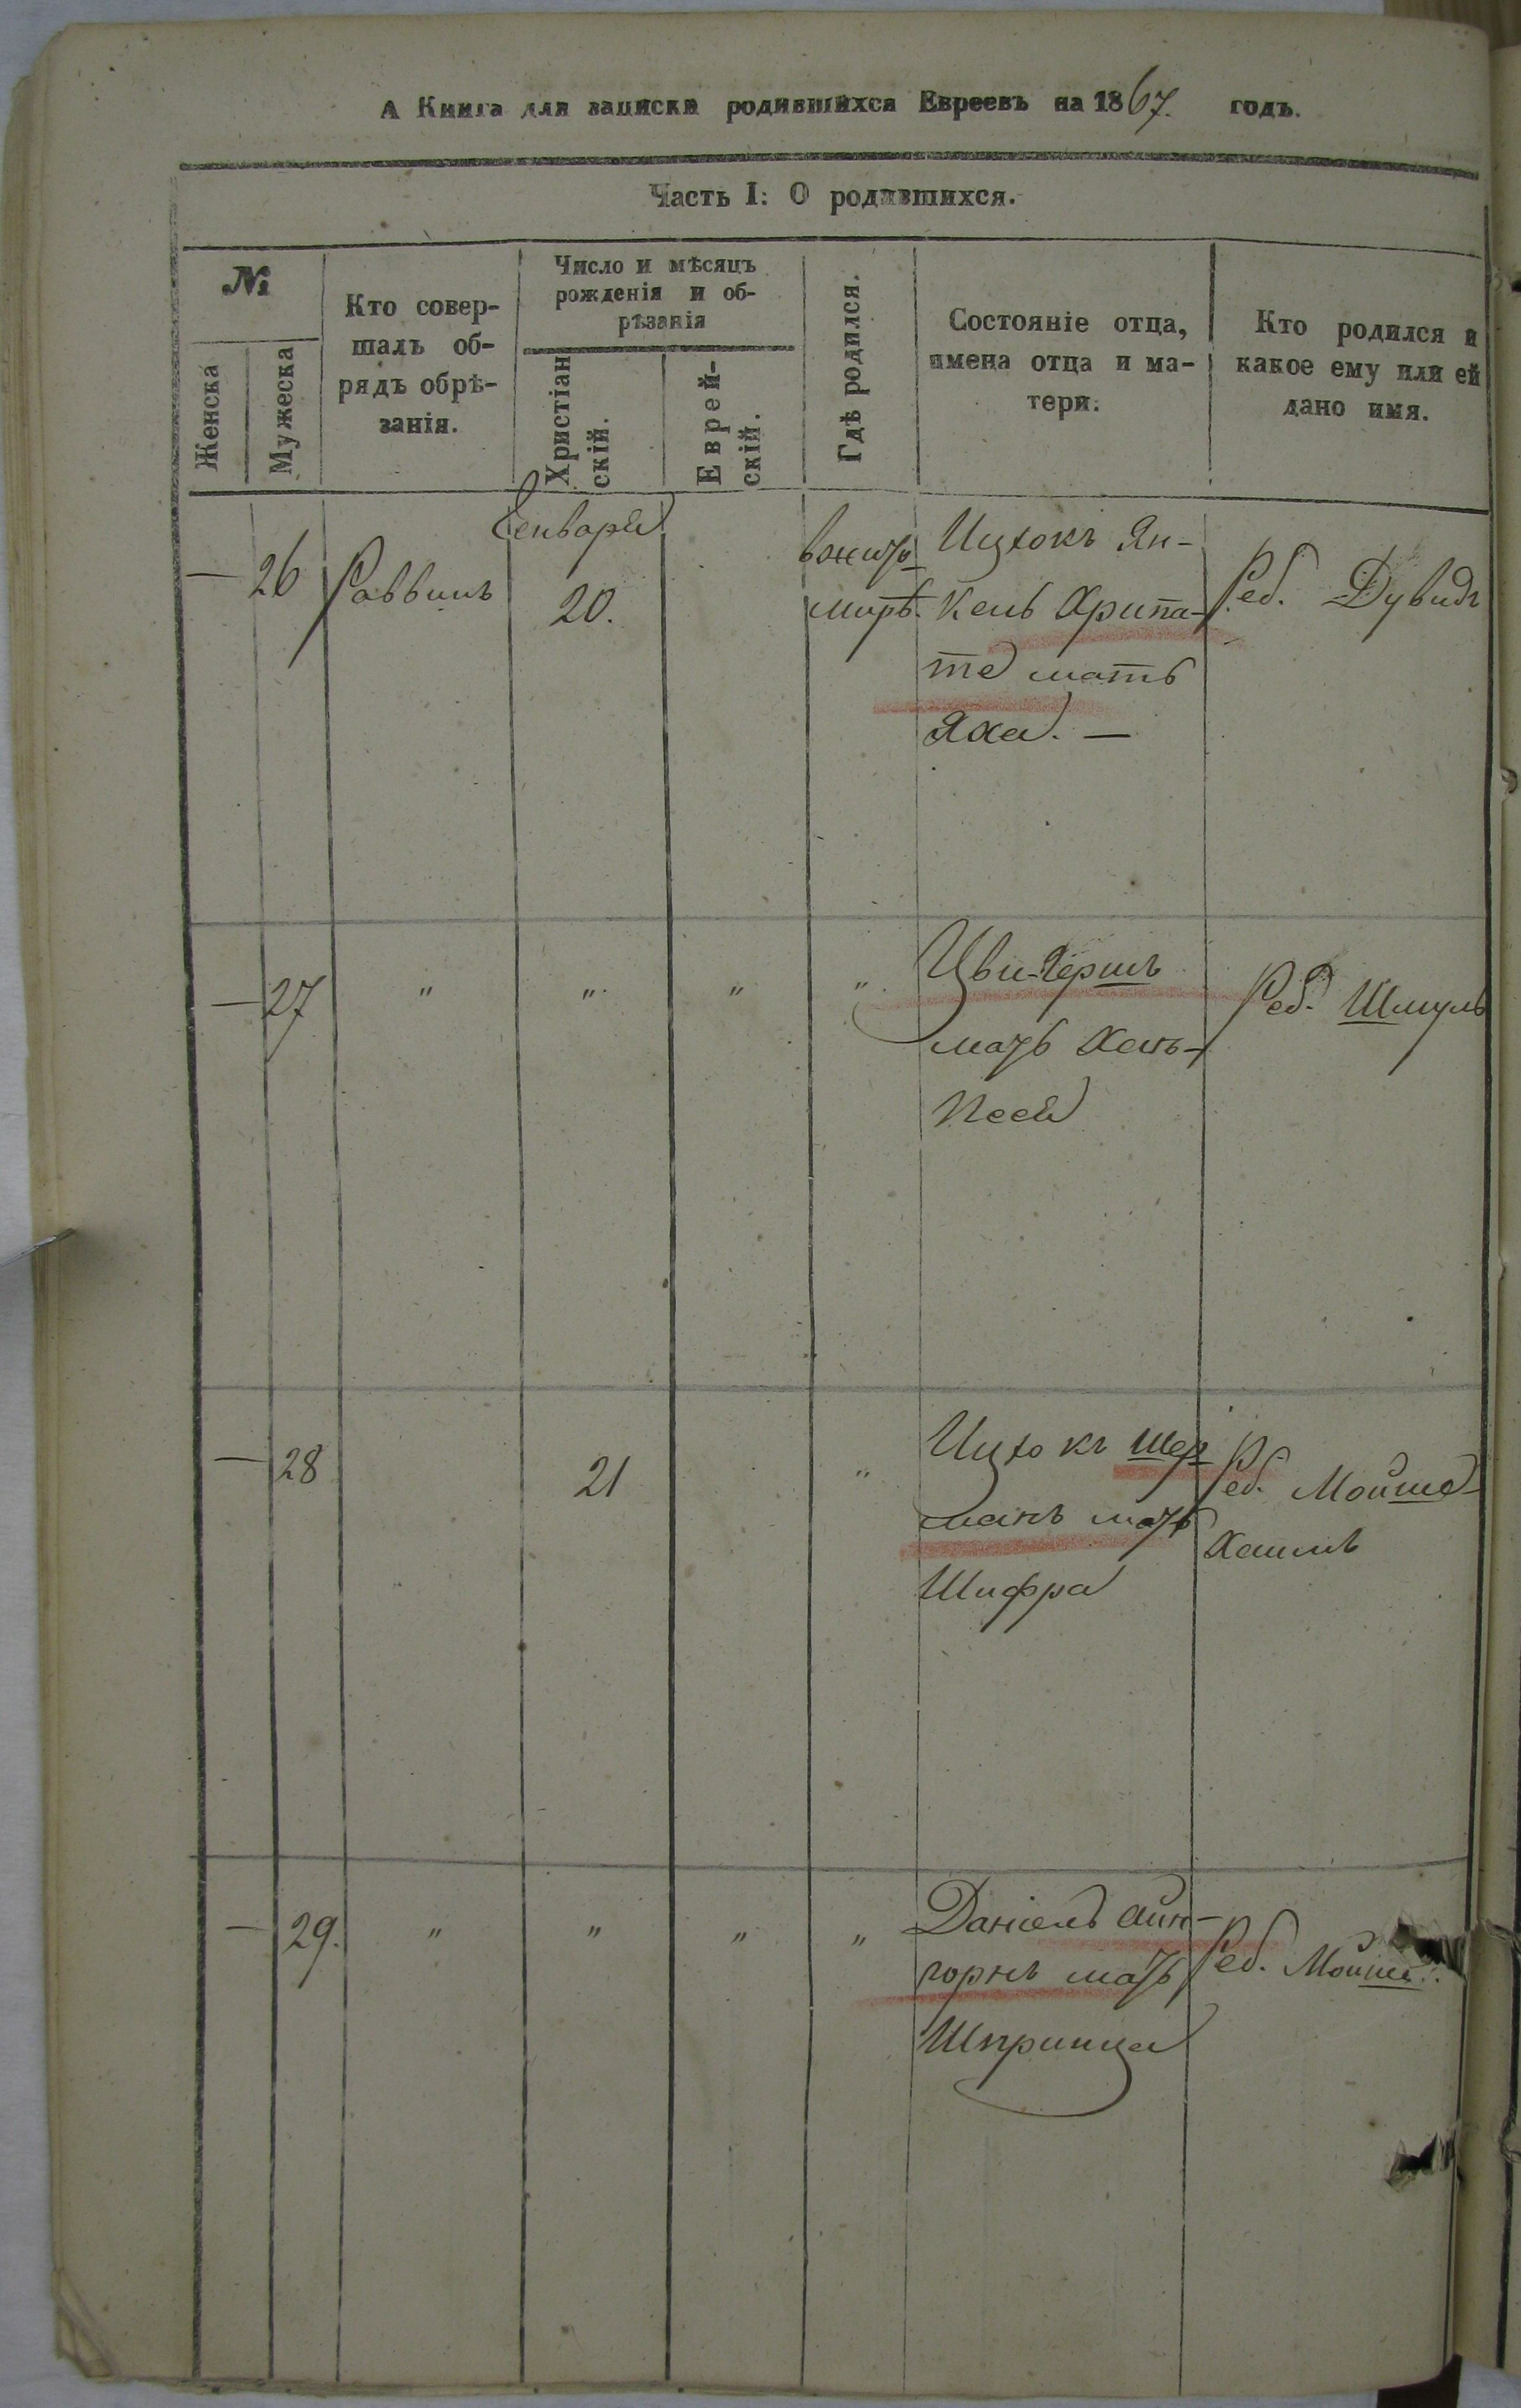 А Книга для записки родившихся Евреевъ на 1867. годъ.
Часть I: О родившихся.
№
Женска
Мужеска
Кто совер-
шалъ об-
рядъ обрѣ-
занія.
Число и мѣсяцъ
рожденія и об-
рѣзанія
Христіан
скій.
Еврей-
скій.
Гдѣ родился.
Состояніе отца,
имена отца и ма-
тери.
Кто родился и
какое ему или ей
дано имя.
Генваря
— 26 Раввинъ 20.
вжито
мирѣ.
Ицхокъ Ян-
кель Хрипа-
те мать
Яха. —
Реб. Дувидъ
— 27 " " " "
Цви-Гершъ
мать Хень-
Песя
Реб. Шмуль
— 28 21 "
Ицхокъ Шер
манъ мать
Шифра
Реб. Мойше-
Хаимъ
— 29. " " " "
Даніель Айн-
горнъ мать
Шпринца
Реб. Мойше